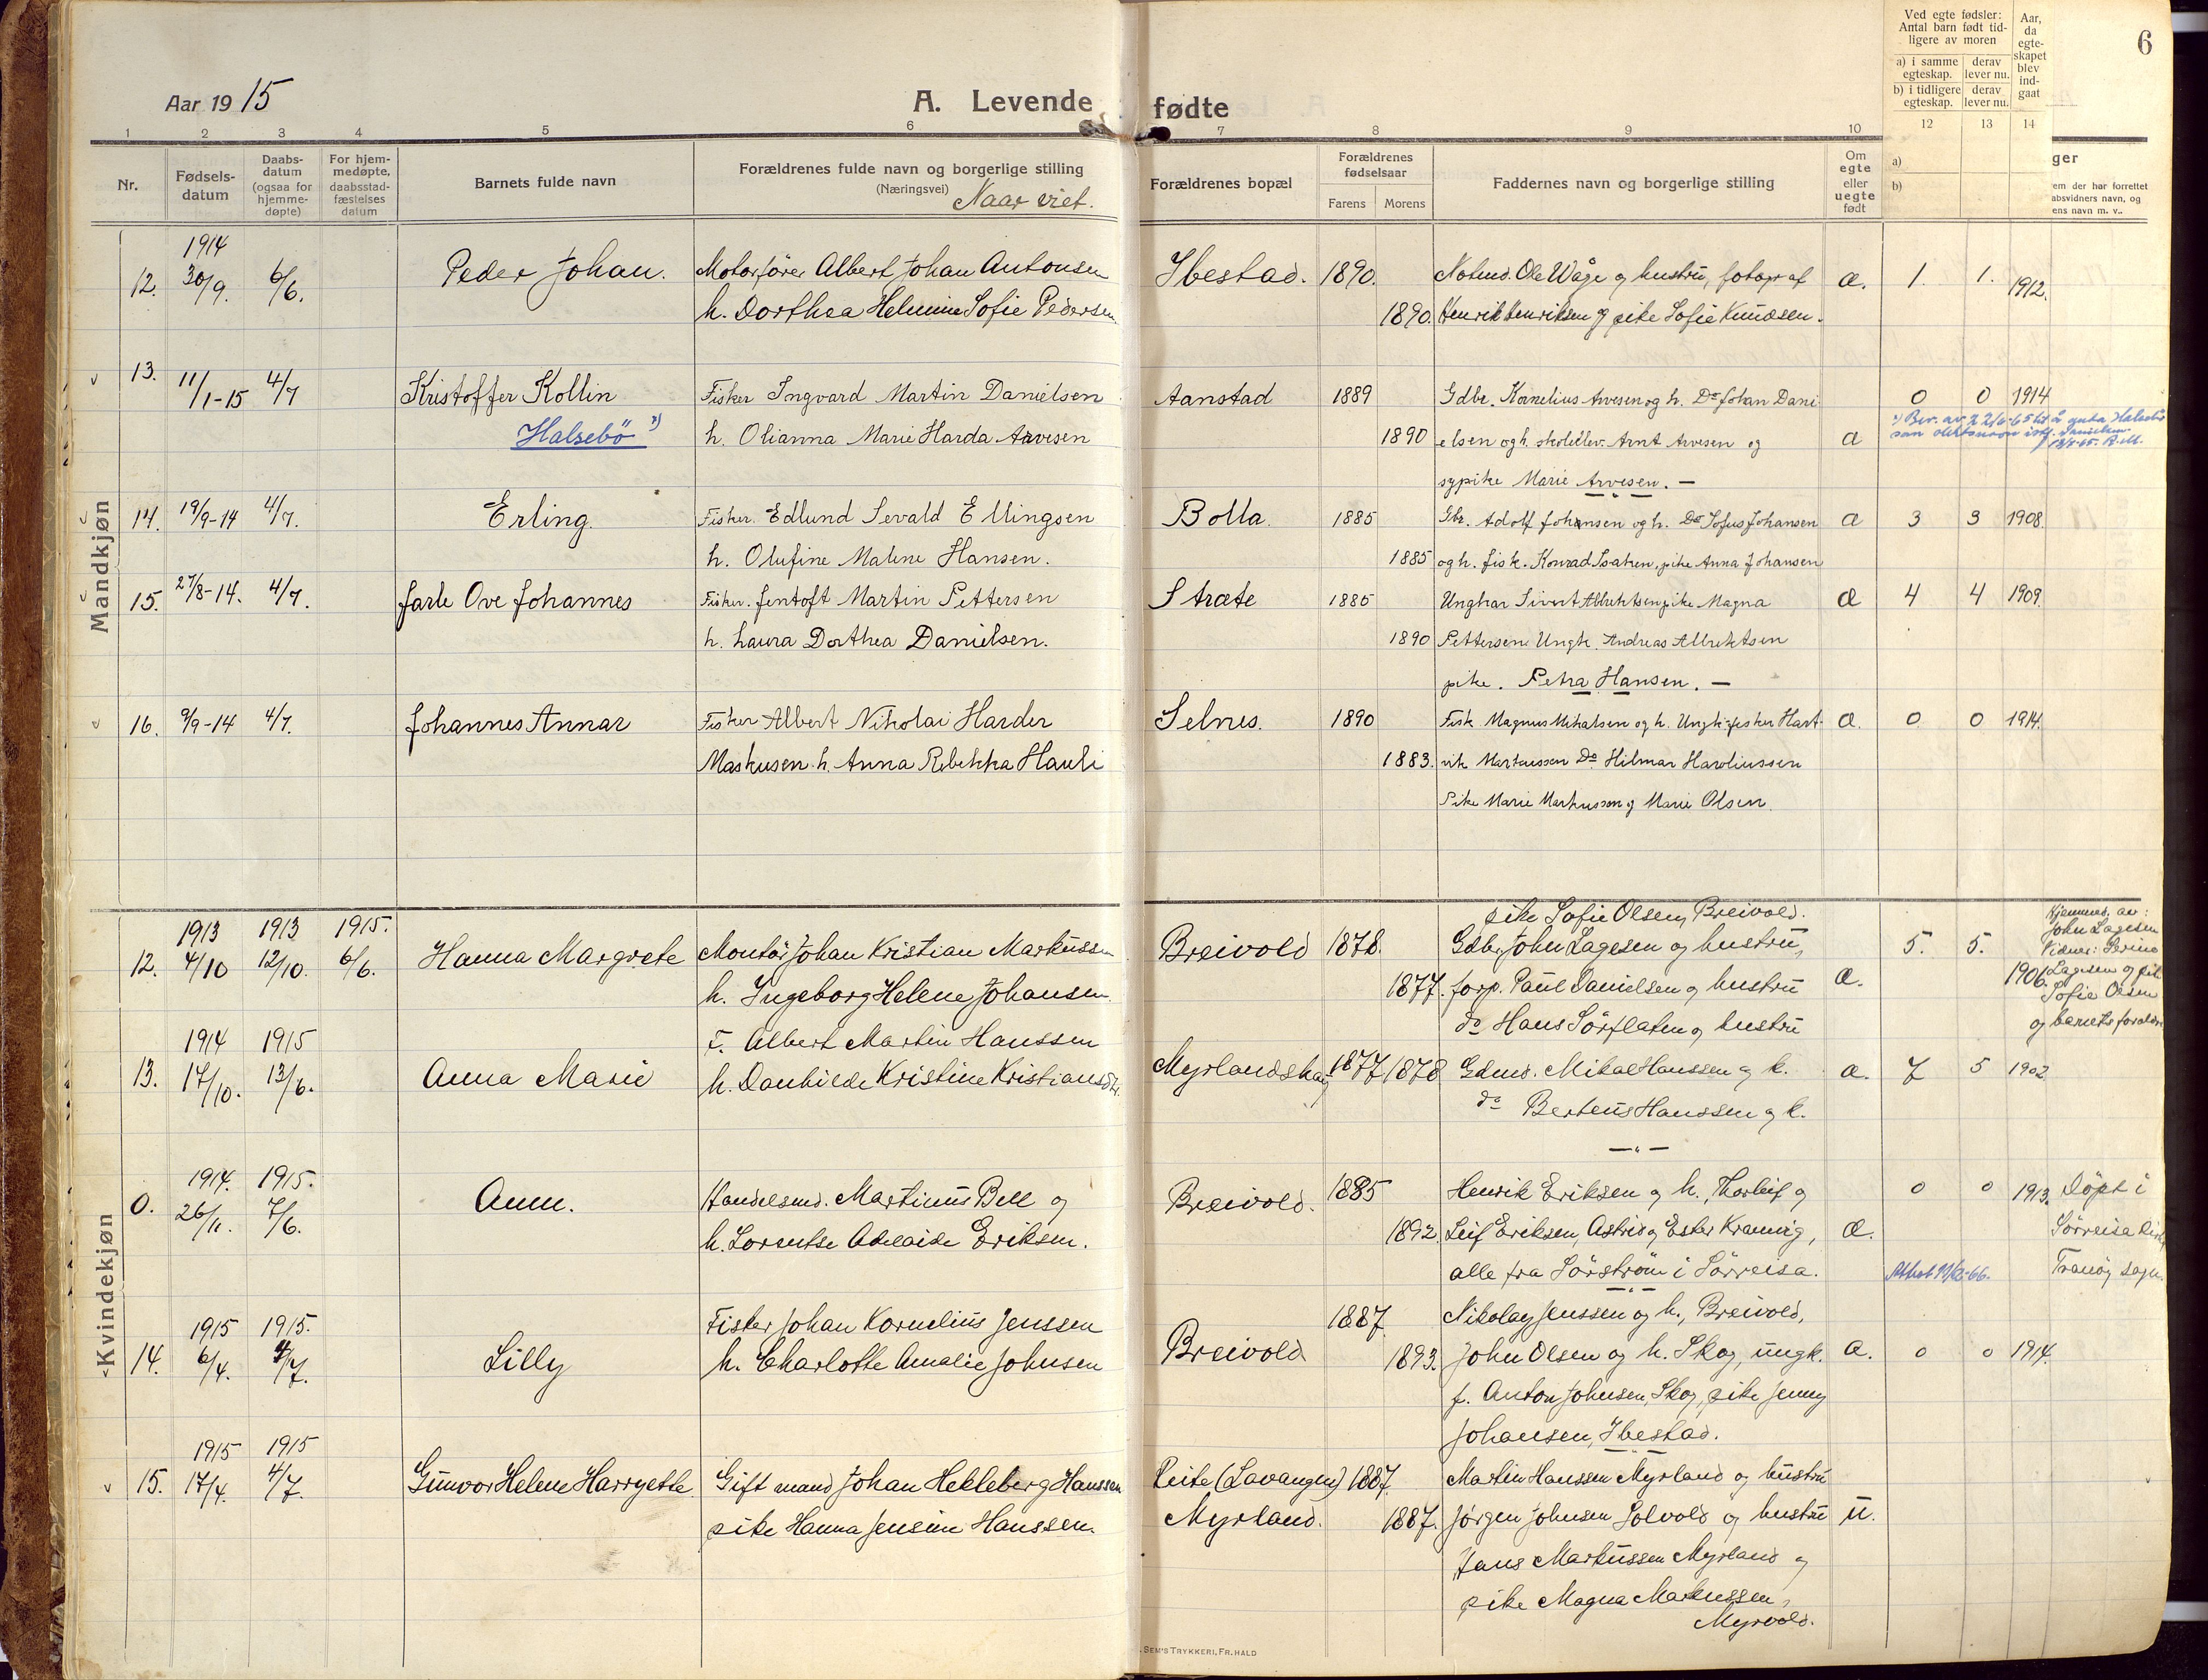 Aar 1915
A. Levende fødte
6
1 2 3 4 5 6 7 8 9 10 12 13 14
Nr.
Fødsels-
datum
Daabs-
datum
(ogsaa for
hjemme-
døpte)
For hjem-
medøpte,
daabsstad-
fæstelses
datum
Barnets fulde navn
Forældrenes fulde navn og borgerlige stilling
(Næringsvei) Naar viet.
Forældrenes bopæl
Forældrenes
fødselsaar
Farens Morens
Faddernes navn og borgerlige stilling
Om
egte
eller
uegte
født
Ved egte fødsler:
Antal barn født tid-
ligere av moren
a) i samme
egteskap.
derav
lever nu.
b) i tidligere
egteskap.
derav
lever nu.
Aar,
da
egte-
skapet
blev
ind-
gaat
a)
b)
ger
em der har forrettet
absvidners navn, og
ens navn m. v..
Mandkjøn
1914
12. 30/9. 6/6. Peder Johan. Motorfører Albert Johan Antonsen Ibestad. 1890. Notmd. Ole Wåge og hustru, fotograf æ. 1. 1. 1912.
h. Dorthea Helmine Sofie Pedersen 1890. Henrik Henriksen og pike Sofie Knudsen.
13. 11/1-15 4/7 Kristoffer Kollin Fisker Ingvard Martin Danielsen Aanstad 1889 Gdbr. Kornelius Arvesen og h. Do Johan Dani- 0 0 1914
Halsebö h. Olianna Marie Harda Arvesen 1890 elsen og h. skoleelev. Arnt Arvesen og æ
sypike Marie Arvesen. —
14. 19/9-14 4/7. Erling. Fisker. Edlund Sevald Ellingsen Bolla. 1885 Gbr. Adolf Johansen og h. Do Sofus Johansen æ 3 3 1908.
h. Olufine Malene Hansen. 1885 og h. fisk. Konrad Isaksen, pike Anna Johansen
15. 27/8-14. 4/7. Jarle Ove Johannes Fisker. Jentoft Martin Pettersen Stræte 1885 Ungkar Sivert Albrektsen pike Magna æ 4 4 1909.
h. Laura Dorthea Danielsen. 1890 Pettersen Ungk. Andreas Albrektsen
pike. Petra Hansen. —
16. 9/9-14 4/7. Johannes Annar Fisker Albert Nikolai Harder Selnes. 1890 Fisk. Magnus Mikalsen og h. Ungk. fisker Hart- æ. 0 0 1914.
Maskusen h. Anna Rebekka Hauli 1883. vik Markussen Do Hilmar Haroliussen
Pike Marie Markussen og Marie Olsen.
Kvindekjøn
pike Sofie Olsen, Breivold.
1913 1913 1915.
12. 4/10 12/10. 6/6. Hanna Margrete Montör Johan Kristian Markussen Breivold 1878. Gdbr. John Lagesen og hustru, 5. 5.
h. Ingeborg Helene Johansen 1877. forp. Paul Danielsen og hustru æ. 1906.
do Hans Sörflaten og hustru
Hjemmed. av:
John Lagesen
Lagesen og
Sofie Olsen
og barnets
1914 1915 F. Albert Martin Hanssen
13. 17/10. 13/6. Anna Marie h. Danhilde Kristine Kristiansdtr. 1877 1878 Gdmd. Mikal Hanssen og k. æ. 7 5 1902
do Berteus Hanssen og k.
1914. 1915.
0. 26/11. 7/6. Aun. Handelsmd. Martinus Bell og Breivold. 1885 Henrik Eriksen og h., Thorleif og 0 0 1913. Döpt i
h. Lorentse Adelaide Eriksen. 1892. Leif Eriksen, Astrid og Ester Kranvig, æ. Sörreisa
alle fra Sörström i Sörreisa. Tranöy sogn.
1915 1915. Fisker Johan Kornelius Jenssen 1887 Nikolay Jenssen og h., Breivold,
14. 6/4. 4/7. Lilly h. Charlotte Amalie Johnsen Breivold 1893. John Olsen og h. Skog, ungk. æ. 0 0 1914.
f. Anton Johnsen, Skog, pike Jenny
Johansen, Ibestad.
1915 1915
15. 17/4. 4/7. Gunvor Helene Harryette Gift mand Johan Hekleberg Hanssen (Lavangen) 1887. Martin Hanssen Myrland og hustru
pike Hanna Jensine Hanssen. Myrland. 1887. Jørgen Johnsen Solvold og hustru u.
Hans Markussen Myrland og
pike Magna Markussen,
Myrvold.
SEM'S TRYKKERI, FR.HALD